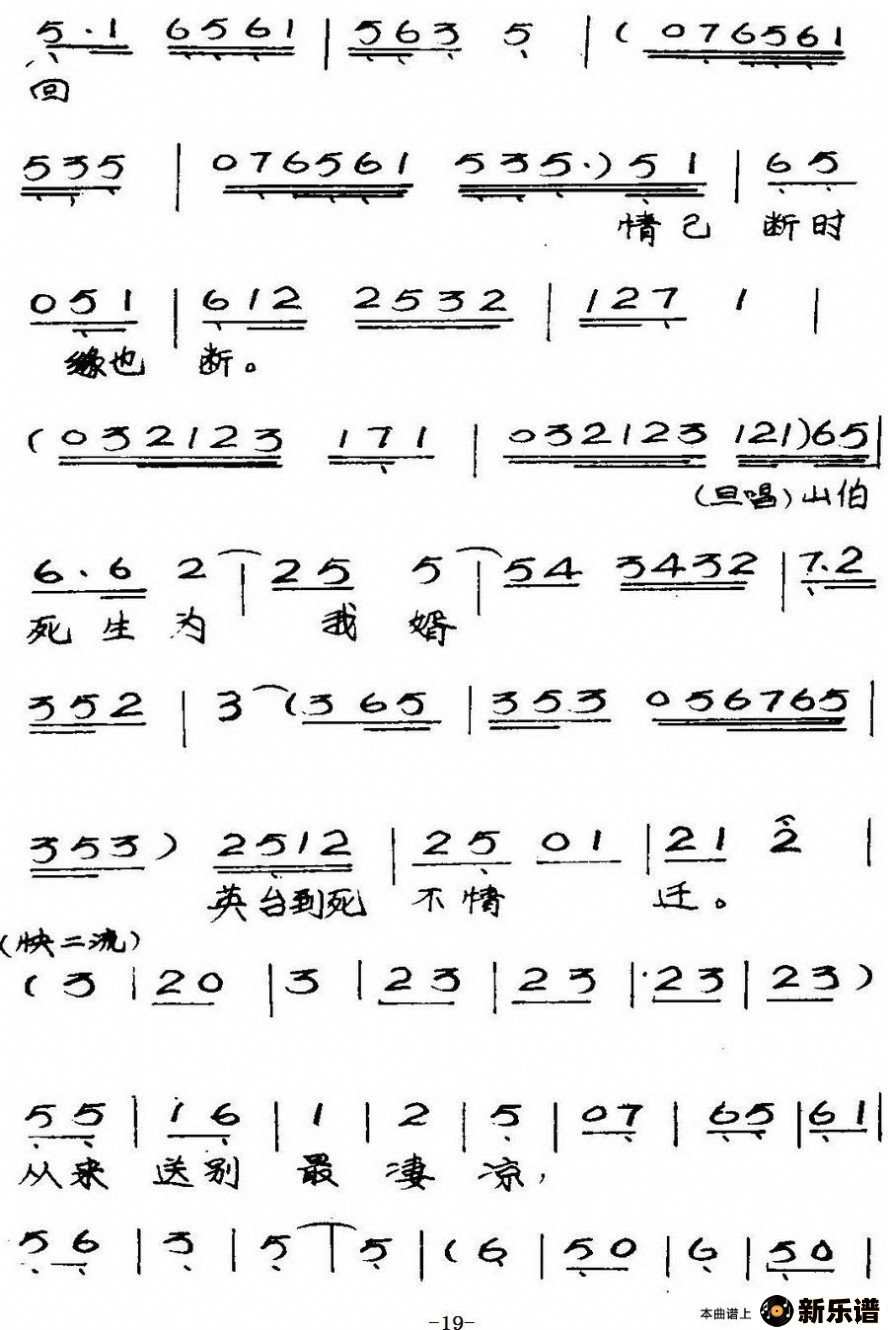 5·1 6561 | 563 5 | ( 076561
回
535 | 076561 535·) 51 | 65
情己 断时
051 | 612 2532 | 127 1 |
缘也 断。
(032123 171 | 032123 121)65|
(旦唱)山伯
6·6 2 | 25 5 | 54 3432 | 7·2
死生为 我 婿
352 | 3 (365 | 353 056765 |
353 ) 2512 | 25 01 | 21 2 |
英台到死 不情 迁。
(快二流)
( 3 | 20 | 3 | 23 | 23 | 23 | 23 )
55 | 16 | 1 | 2 | 5 | 07 | 65 | 61 |
从来 送别 最 凄 凉,
56 | 3 | 5 | 5 | ( 6 | 50 | 6 | 50 |
本曲谱上 新乐谱
-19-